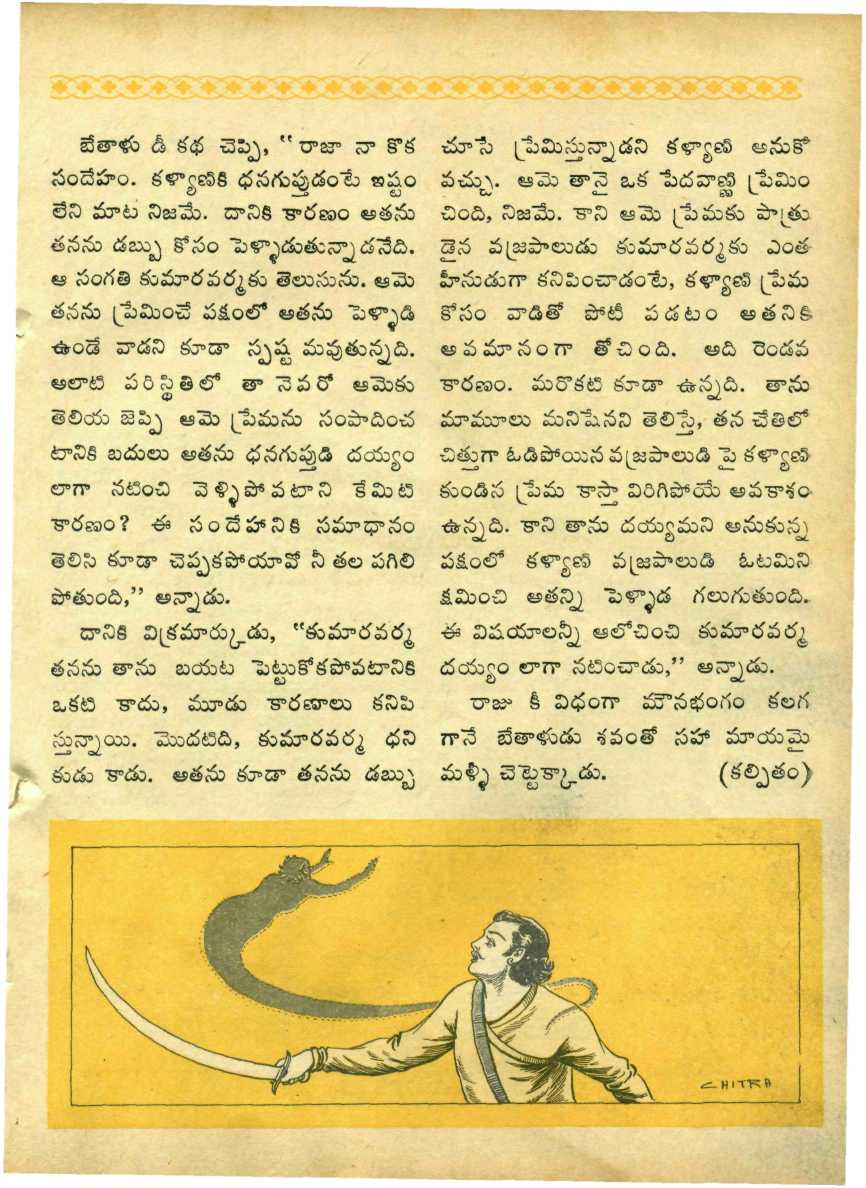 బేతాళు డీ కథ చెప్పి, “రాజా నా కొక
సందేహం. కళ్యాణికి ధనగుప్తుడంటే ఇష్టం
లేని మాట నిజమే. దానికి కారణం అతను
తనను డబ్బు కోసం పెళ్ళాడుతున్నాడనేది.
ఆ సంగతి కుమారవర్మకు తెలుసును. ఆమె
తనను ప్రేమించే పక్షంలో అతను పెళ్ళాడి
ఉండే వాడని కూడా స్పష్ట మవుతున్నది.
అలాటి పరిస్థితిలో తా నెవరో ఆమెకు
తెలియ జెప్పి ఆమె ప్రేమను సంపాదించ
టానికి బదులు అతను ధనగుప్తుడి దయ్యం
లాగా నటించి వెళ్ళిపోవటాని కేమిటి
కారణం? ఈ సందేహానికి సమాధానం
తెలిసి కూడా చెప్పకపోయావో నీ తల పగిలి
పోతుంది,” అన్నాడు.
దానికి విక్రమార్కుడు, “కుమారవర్మ
తనను తాను బయట పెట్టుకోకపోవటానికి
ఒకటి కాదు, మూడు కారణాలు కనిపి
స్తున్నాయి. మొదటిది, కుమారవర్మ ధని
కుడు కాడు. అతను కూడా తనను డబ్బు
చూసే ప్రేమిస్తున్నాడని కళ్యాణి అనుకో
వచ్చు. ఆమె తానై ఒక పేదవాణ్ణి ప్రేమిం
చింది, నిజమే. కాని ఆమె ప్రేమకు పాత్రు
డైన వజ్రపాలుడు కుమారవర్మకు ఎంత
హీనుడుగా కనిపించాడంటే, కళ్యాణి ప్రేమ
కోసం వాడితో పోటీ పడటం అతనికి
అవమానంగా తోచింది. అది రెండవ
కారణం. మరొకటి కూడా ఉన్నది. తాను
మామూలు మనిషేనని తెలిస్తే, తన చేతిలో
చిత్తుగా ఓడిపోయిన వజ్రపాలుడి పై కళ్యాణి
కుండిన ప్రేమ కాస్తా విరిగిపోయే అవకాశం
ఉన్నది. కాని తాను దయ్యమని అనుకున్న
పక్షంలో కళ్యాణి వజ్రపాలుడి ఓటమిని
క్షమించి అతన్ని పెళ్ళాడ గలుగుతుంది.
ఈ విషయాలన్నీ ఆలోచించి కుమారవర్మ
దయ్యం లాగా నటించాడు,” అన్నాడు.
రాజు కీ విధంగా మౌనభంగం కలగ
గానే బేతాళుడు శవంతో సహా మాయమై
మళ్ళీ చెట్టెక్కాడు. (కల్పితం)
CHITRA